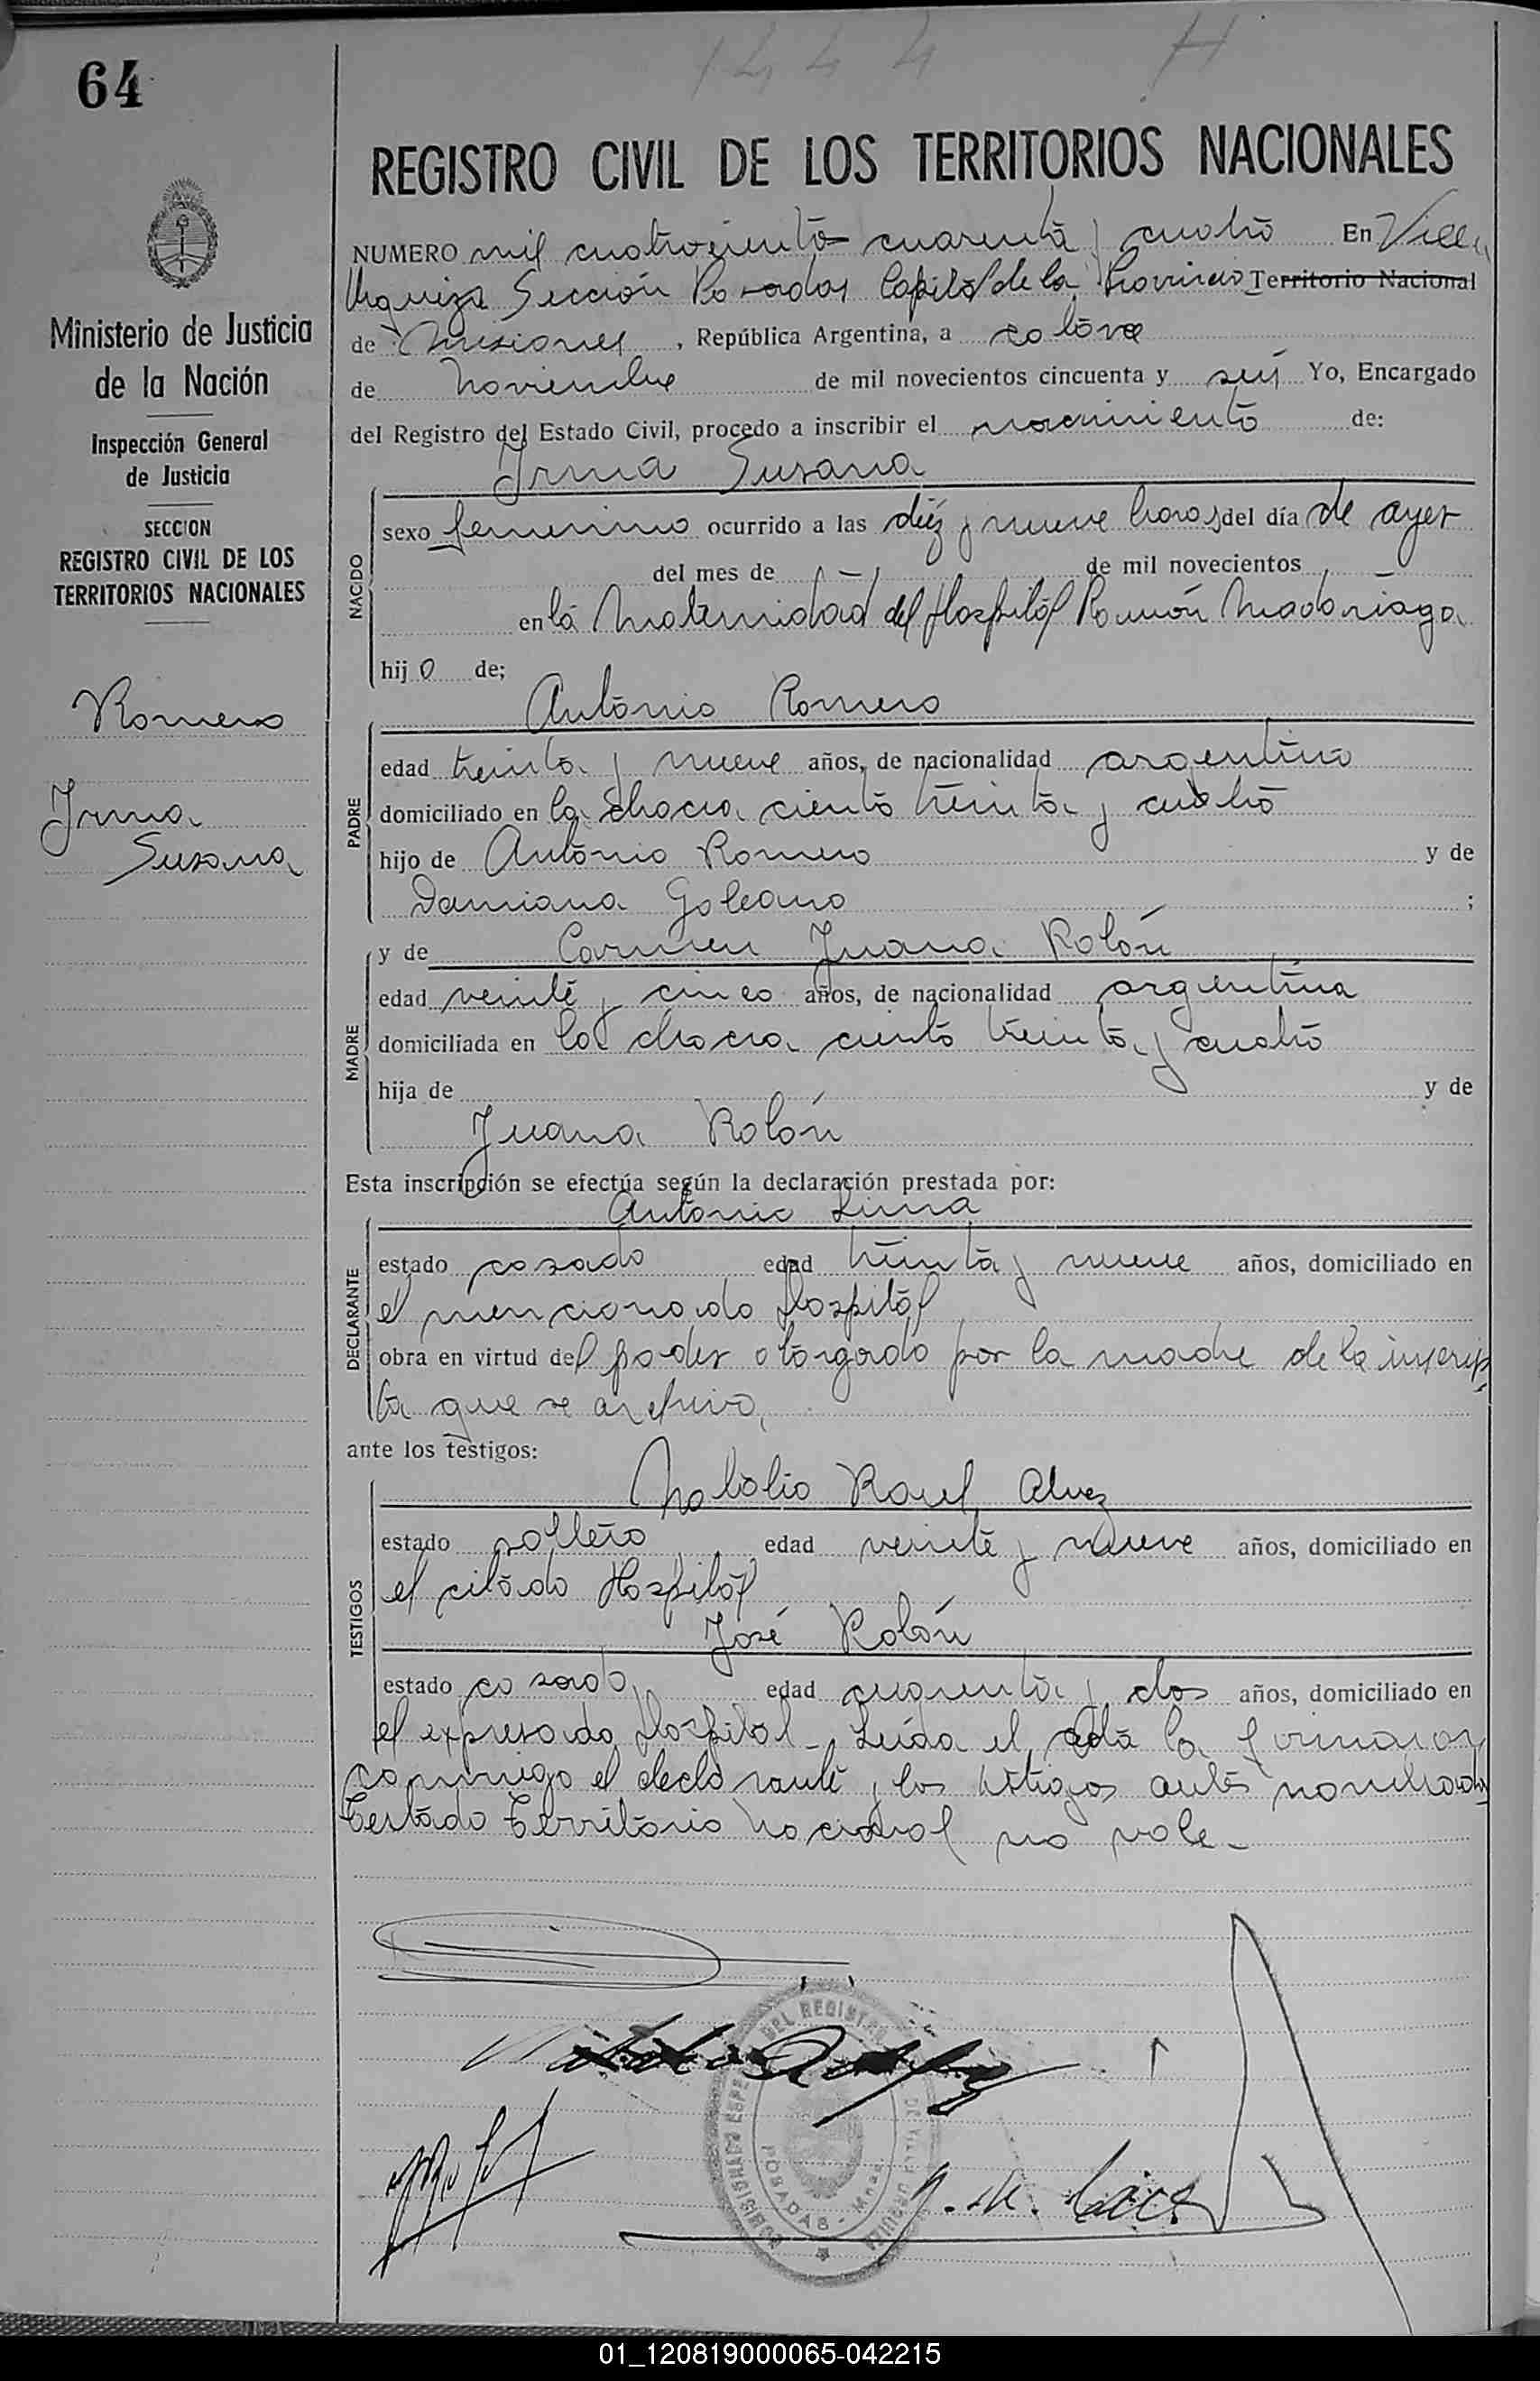 1444 H
64
REGISTRO CIVIL DE LOS TERRITORIOS NACIONALES
NUMERO mil cuatrocientos cuarenta y cuatro En Villa
Urquiza Sección Posadas Capital de la Provincia Territorio Nacional
de Misiones, República Argentina, a catorce
de Noviembre de mil novecientos cincuenta y seis Yo, Encargado
del Registro del Estado Civil, procedo a inscribir el nacimiento de:
Irma Susana
NACIDO
sexo femenino ocurrido a las diez y nueve horas del día de ayer
del mes de — de mil novecientos —
en la Maternidad del Hospital Ramón Madariaga
hij o de;
Antonio Romero
PADRE
edad treinta y nueve años, de nacionalidad argentino
domiciliado en la chacra ciento treinta y cuatro
hijo de Antonio Romero y de
Damiana Goleano ;
y de Carmen Juana Rolón
MADRE
edad veinte y cinco años, de nacionalidad argentina
domiciliada en la chacra ciento treinta y cuatro
hija de y de
Juana Rolón
Esta inscripción se efectúa según la declaración prestada por:
Antonio Lima
DECLARANTE
estado casado edad treinta y nueve años, domiciliado en
el mencionado Hospital
obra en virtud del poder otorgado por la madre de la inscrip
ta que se archiva.
ante los testigos:
Natalio Raul Alvez
TESTIGOS
estado soltero edad veinte y nueve años, domiciliado en
el citado Hospital
José Rolón
estado casado, edad cuarenta y dos años, domiciliado en
el expresado Hospital - Leída el acta la firmaron
conmigo el declarante y los testigos antes nombrados
Testado Territorio Nacional no vale -
Ministerio de Justicia
de la Nación
Inspección General
de Justicia
SECCION
REGISTRO CIVIL DE LOS
TERRITORIOS NACIONALES
Romero
Irma
Susana
DEL REGISTRO
POSADAS - Mnes.
01_120819000065-042215